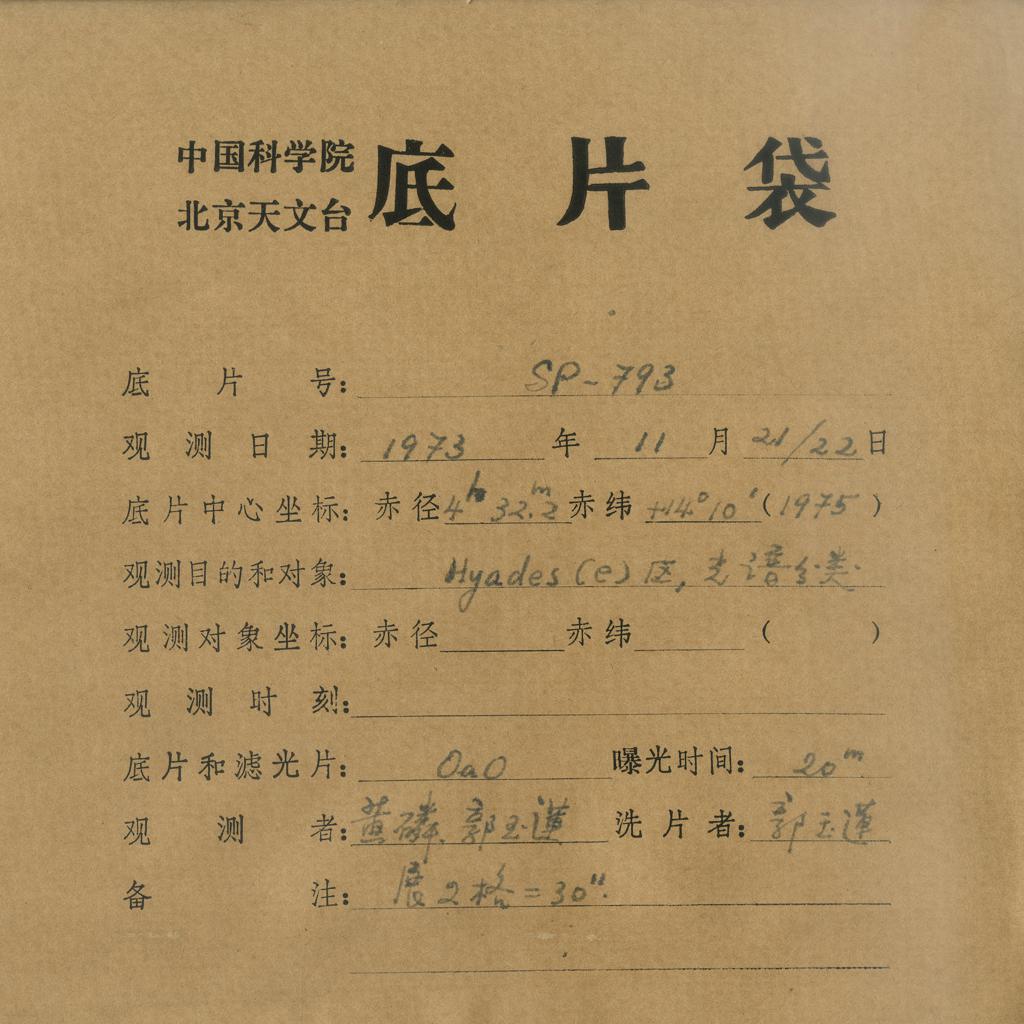 中国科学院
北京天文台
底片袋
底片号: SP-793
观测日期: 1973年11月21/22日
底片中心坐标: 赤径4h 32.m2 赤纬+14°10′(1975)
观测目的和对象: Hyades (e) 区, 光谱分类.
观测对象坐标: 赤径 赤纬 ( )
观测时刻:
底片和滤光片: OaO 曝光时间: 20m
观测者: 黄磷. 郭玉莲 洗片者: 郭玉莲
备注: 展2格=30″.